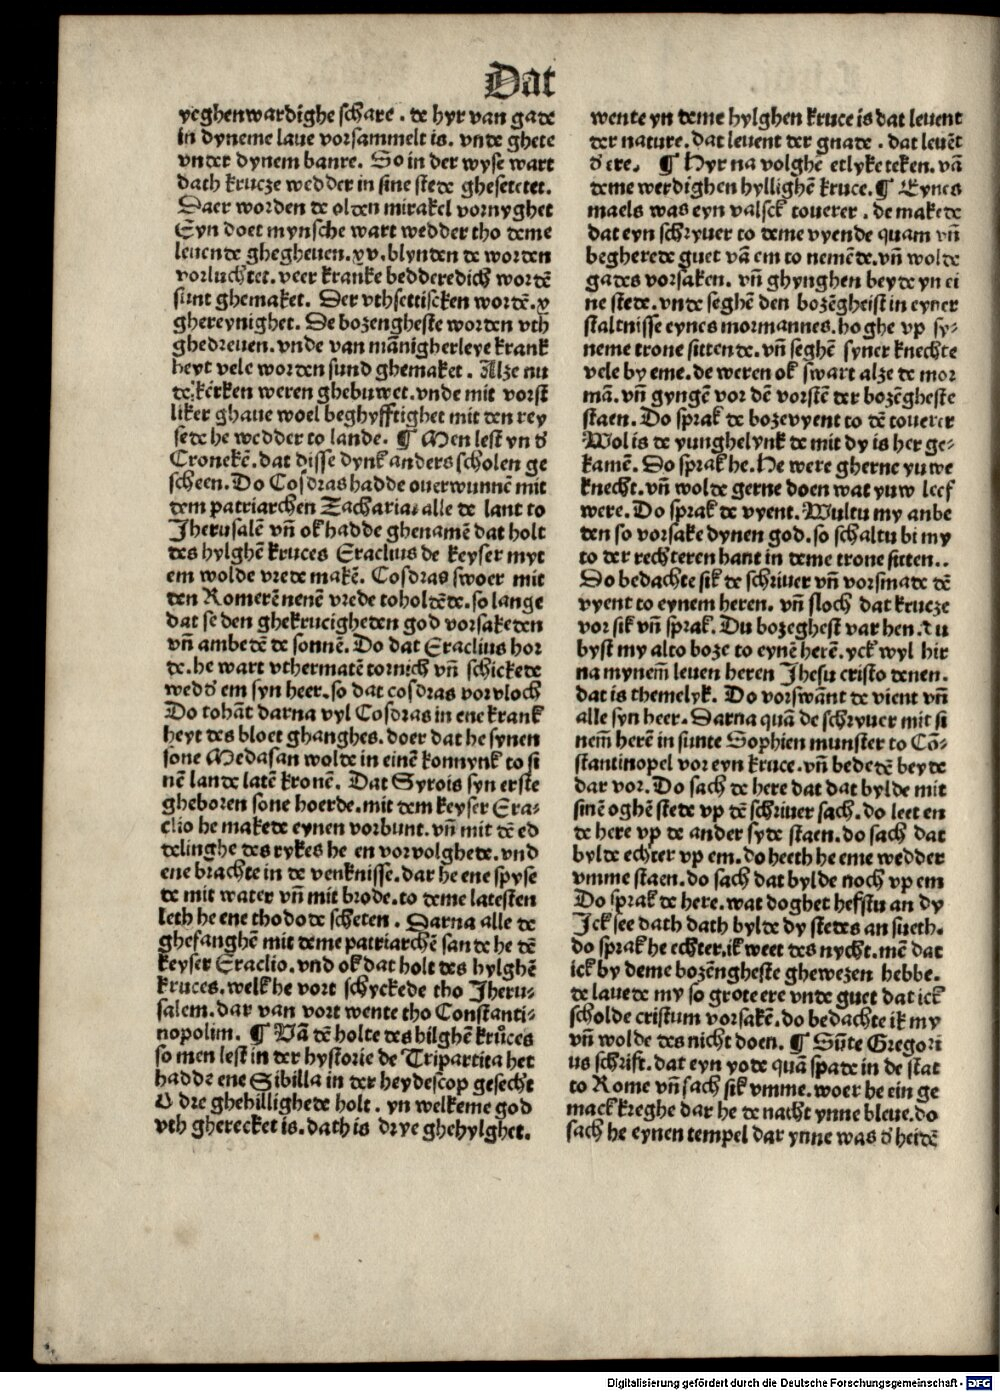 Dat
yeghenwardighe schare . de hyr van gade
in dyneme laue vorsammelt is. vnde ghete
vnder dynem banre. So in der wyse wart
dath krucze wedder in sine stede ghesetctet.
Daer worden de olden mirakel vornyghet
Eyn doet mynsche wart wedder tho deme
leuende ghegheuen. xv. blynden de worden
vorluchtet. veer kranke bedderedich wordē
sunt ghemaket. Der vthsettiscken wordē. x
ghereynighet. De bozengheste worden vth
ghedreuen. vnde van mānigherleye krank
heyt vele worden sund ghemaket . Alze nu
de kerken weren ghebuwet. vnde mit vorst
liker ghaue woel beghyfftighet mit den rey
sede he wedder to lande. ¶ Men lest yn đ
Cronekē. dat disse dynk anders scholen ge
scheen. Do Cosdras hadde ouerwunnē mit
dem patriarchen Zacharias alle de lant to
Jherusalē vn̄ ok hadde ghenamē dat holt
des hylghē kruces Eraclius de keyser myt
em wolde vrede makē. Cosdras swoer mit
den Romerē nenē vrede toholdēde. so lange
dat se den ghekrucigheden god vorsakeden
vn̄ ambedē de sonnē. Do dat Eraclius hor
de. he wart vthermatē tornich vn̄ schickede
wedđ em syn heer. so dat cosdras vorvloch
Do tohāt darna vyl Cosdras in ene krank
heyt des bloet ghanghes. doer dat he synen
sone Medasan wolde in einē konnynk to si
nē lande latē kronē. Dat Syrois syn erste
gheboren sone hoerde. mit dem keyser Era-
clio he makede eynen vorbunt. vn̄ mit dē ed
delinghe des rykes he en vorvolghede. vnd
ene brachte in de venknisse. dar he ene spyse
de mit water vn̄ mit brode. to deme latesten
leth he ene tho dode scheten . Darna alle de
ghefanghē mit deme patriarchē sande he dē
keyser Eraclio. vnd ok dat holt des hylghē
kruces. welk he vort schyckede tho Jheru-
salem. dar van vort wente tho Constanti-
nopolim. ¶ Vā dē holte des hilghē krůces
so men lest in der hystorie de Tripartita het
hadde ene Sibilla in der heydescop gesecht
O dre ghehillighede holt . yn welkeme god
vth gherecket is. dath is drye ghehylghet.
wente yn deme hylghen kruce is dat leuent
der nature. dat leuent der gnade . dat leuēt
đ ere. ¶ Hyr na volghē etlyke teken. vā
deme werdighen hyllighē kruce. ¶ Eynes
maels was eyn valsck touerer . de makede
dat eyn schryuer to deme vyende quam vn̄
begherede guet vā em to nemēde. vn̄ wolde
gades vorsaken. vn̄ ghynghen beyde yn ei
ne stede. vnde seghē den bozēgheist in eyner
staltnisse eynes mormannes. hoghe vp sy-
neme trone sittende. vn̄ seghē syner knechte
vele by eme. de weren ok swart alze de mor
mā. vn̄ gyngē vor dē vorstē der bozēgheste
staen. Do sprak de bozevyent to dē touerer
Wol is de yunghelynk de mit dy is her ge-
kamē. Do sprak he. He were gherne yuwe
knecht. vn̄ wolde gerne doen wat yuw leef
were. Do sprak de vyent. Wultu my anbe
den so vorsake dynen god. so schaltu bi my
to der rechteren hant in deme trone sitten..
Do bedachte sik de schriuer vn̄ vorsmade dē
vyent to eynem heren. vn̄ sloch dat krucze
vor sik vn̄ sprak. Du bozeghest var hen. du
byst my alto boze to eynē herē. yck wyl hir
na mynem̄ leuen heren Jhesu cristo denen.
dat is themelyk. Do vorswānt de vient vn̄
alle syn heer. Darna quā de schryuer mit si
nem̄ herē in sunte Sophien munster to Cō-
stantinopel vor eyn kruce. vn̄ bededē beyde
dar vor. Do sach de here dat dat bylde mit
sinē oghē stede vp dē schriuer sach. do leet en
de here vp de ander syde staen. do sach dat
bylde echter vp em. do heeth he eme wedder
vmme staen. do sach dat bylde noch vp em
Do sprak de here. wat doghet hefstu an dy
Jck see dath dath bylde dy stedes an sueth.
do sprak he echter. ik weet des nycht. mē dat
ick by deme bozēngheste ghewezen hebbe.
de lauede my so grote ere vnde guet dat ick
scholde cristum vorsakē. do bedachte ik my
vn̄ wolde des nicht doen. ¶ Sūte Gregori
us schrift. dat eyn yode quā spade in de stat
to Rome vn̄ sach sik vmme. woer he ein ge
mack kreghe dar he de nacht ynne bleue. do
sach he eynen tempel dar ynne was đ heidē
Digitalisierung gefördert durch die Deutsche Forschungsgemeinschaft - DFG